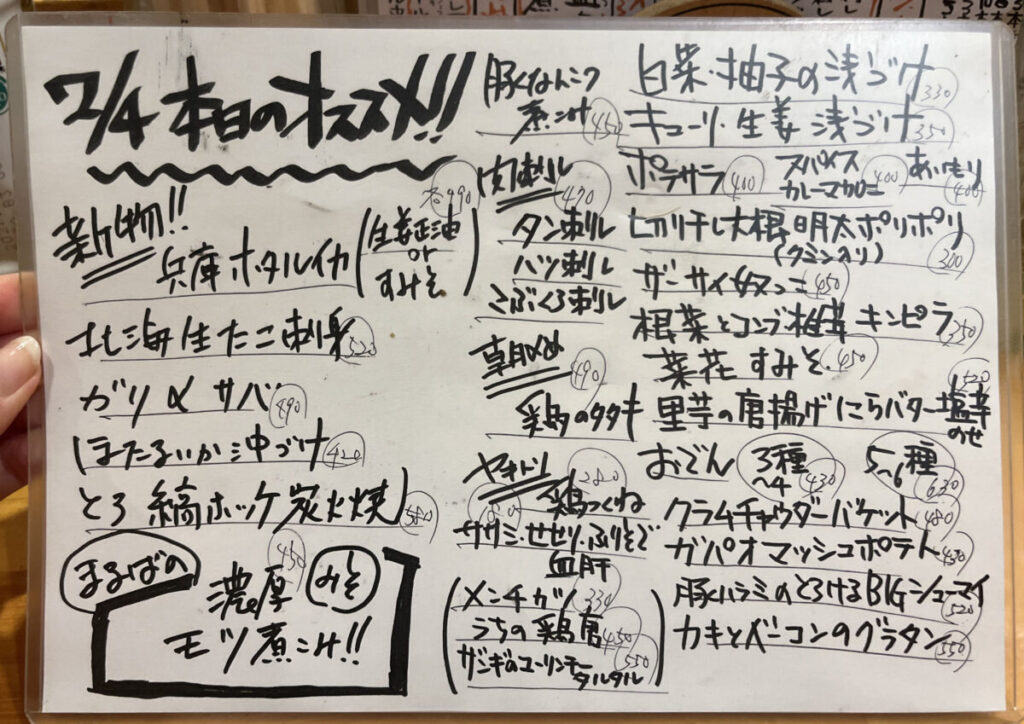 2/4 本日のオススメ!!
新物!!
兵庫ホタルイカ
(生姜正油
or
すみそ)
各990
北海生たこ刺身 520
ガリ〆サバ 490
ほたるいか沖づけ 420
とろ縞ホッケ炭火焼 580
まるばの
濃厚 みそ 450
モツ煮こみ!!
豚くなんこつ
煮こみ 450
肉刺し 490
タン刺し
ハツ刺し
こぶくろ刺し
朝〆め 490
鶏のタタキ
ヤキトリ 280
鶏つくね
ササミ・せせり・ふりそで
血肝
(メンチカツ 330
うちの鶏唐 450
ザンギのユーリンチータルタル 550)
白菜・柚子の浅づけ 330
キューリ・生姜 浅づけ 350
ポテサラ 400 スパイスカレーマカロニ 400 あいもり 400
切り干し大根明太ポリポリ
(クミン入り) 300
ザーサイ奴っこ 450
根菜とコンブ椎茸キンピラ 350
菜花 すみそ 450
里芋の唐揚げにらバター塩辛のせ 520
おでん 3種~4 430 5~6種 630
クラムチャウダーバゲット 480
ガパオマッシュポテト 450
豚ハラミのとろけるBIGシューマイ 520
カキとベーコンのグラタン 550